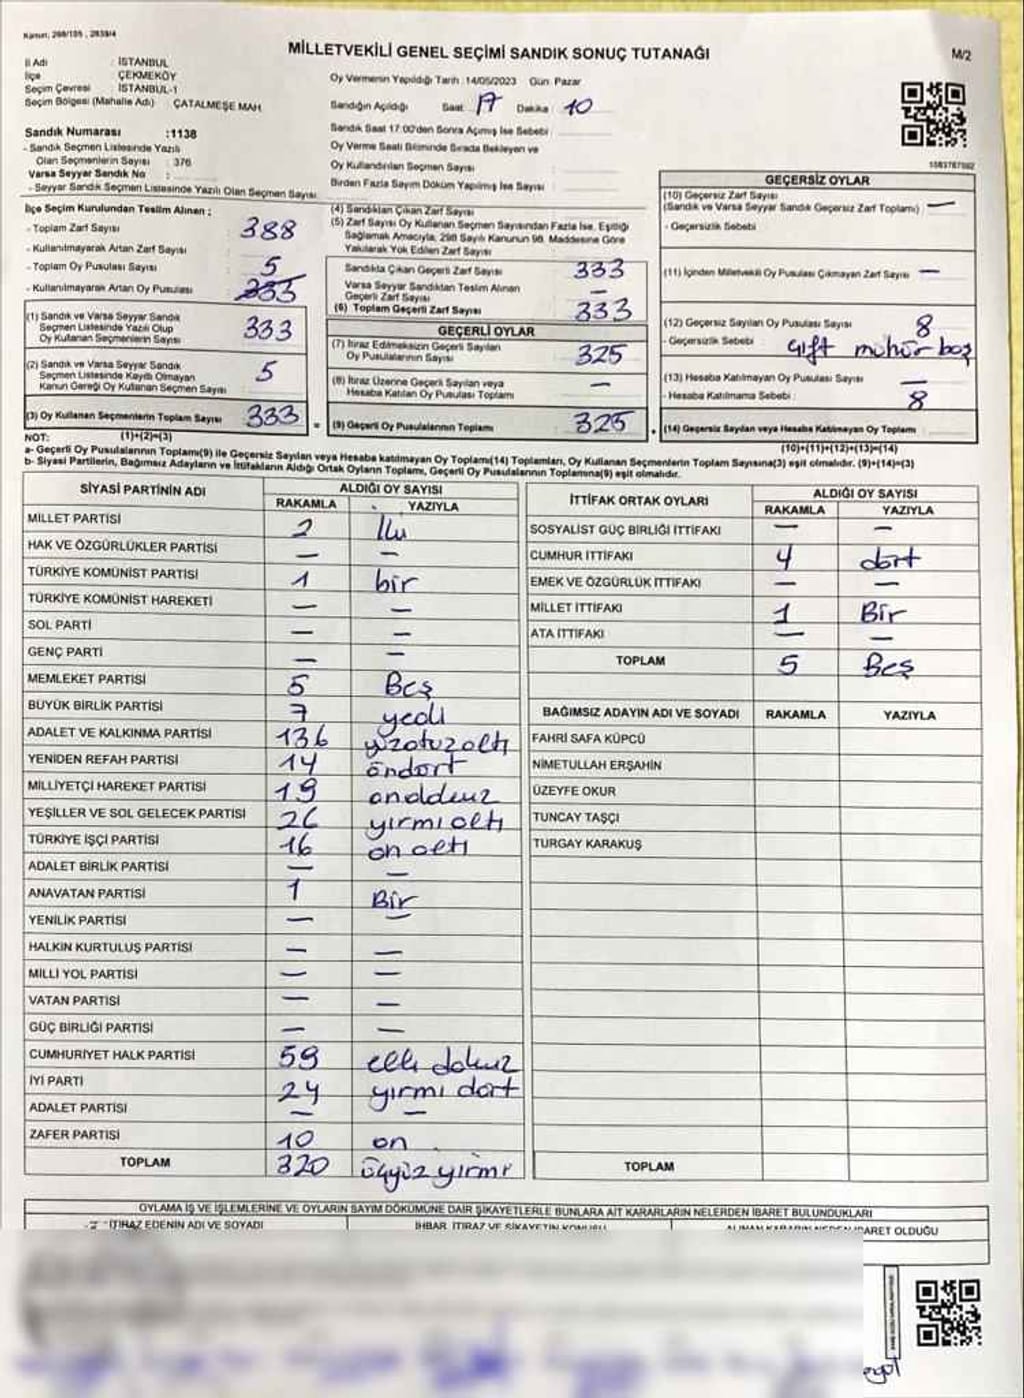 Kanun; 298/105 , 2839/4
MİLLETVEKİLİ GENEL SEÇİMİ SANDIK SONUÇ TUTANAĞI
M/2
İl Adı : İSTANBUL
İlçe : ÇEKMEKÖY
Seçim Çevresi : İSTANBUL-1
Seçim Bölgesi (Mahalle Adı) : ÇATALMEŞE MAH.
Oy Vermenin Yapıldığı Tarih : 14/05/2023 Gün: Pazar
Sandığın Açıldığı Saat 17 Dakika : 10
Sandık Saat 17:00'den Sonra Açmış İse Sebebi :
Oy Verme Saati Bitiminde Sırada Bekleyen ve
Oy Kullandırılan Seçmen Sayısı :
Birden Fazla Sayım Döküm Yapılmış İse Sayısı :
Sandık Numarası :1138
- Sandık Seçmen Listesinde Yazılı
Olan Seçmenlerin Sayısı : 376
Varsa Seyyar Sandık No :
- Seyyar Sandık Seçmen Listesinde Yazılı Olan Seçmen Sayısı
İlçe Seçim Kurulundan Teslim Alınan ;
- Toplam Zarf Sayısı : 388
- Kullanılmayarak Artan Zarf Sayısı :
- Toplam Oy Pusulası Sayısı : 5
- Kullanılmayarak Artan Oy Pusulası : 335
(1) Sandık ve Varsa Seyyar Sandık
Seçmen Listesinde Yazılı Olup
Oy Kullanan Seçmenlerin Sayısı : 333
(2) Sandık ve Varsa Seyyar Sandık
Seçmen Listesinde Kayıtlı Olmayan
Kanun Gereği Oy Kullanan Seçmen Sayısı : 5
(3) Oy Kullanan Seçmenlerin Toplam Sayısı 333
(4) Sandıktan Çıkan Zarf Sayısı
(5) Zarf Sayısı Oy Kullanan Seçmen Sayısından Fazla İse, Eşitliği
Sağlamak Amacıyla, 298 Sayılı Kanunun 98. Maddesine Göre
Yakılarak Yok Edilen Zarf Sayısı
Sandıkta Çıkan Geçerli Zarf Sayısı : 333
Varsa Seyyar Sandıktan Teslim Alınan
Geçerli Zarf Sayısı : —
(6) Toplam Geçerli Zarf Sayısı : 333
GEÇERLİ OYLAR
(7) İtiraz Edilmeksizin Geçerli Sayılan
Oy Pusulalarının Sayısı : 325
(8) İtiraz Üzerine Geçerli Sayılan veya
Hesaba Katılan Oy Pusulası Toplamı : —
= (9) Geçerli Oy Pusulalarının Toplamı : 325
1583787002
GEÇERSİZ OYLAR
(10) Geçersiz Zarf Sayısı
(Sandık ve Varsa Seyyar Sandık Geçersiz Zarf Toplamı) : —
- Geçersizlik Sebebi :
(11) İçinden Milletvekili Oy Pusulası Çıkmayan Zarf Sayısı : —
(12) Geçersiz Sayılan Oy Pusulası Sayısı : 8
- Geçersizlik Sebebi : çift mühür boş
(13) Hesaba Katılmayan Oy Pusulası Sayısı : —
- Hesaba Katılmama Sebebi : 8
(14) Geçersiz Sayılan veya Hesaba Katılmayan Oy Toplamı :
NOT: (1)+(2)=(3) (10)+(11)+(12)+(13)=(14)
a- Geçerli Oy Pusulalarının Toplamı(9) ile Geçersiz Sayılan veya Hesaba katılmayan Oy Toplamı(14) Toplamları, Oy Kullanan Seçmenlerin Toplam Sayısına(3) eşit olmalıdır. (9)+(14)=(3)
b- Siyasi Partilerin, Bağımsız Adayların ve İttifakların Aldığı Ortak Oyların Toplamı, Geçerli Oy Pusulalarının Toplamına(9) eşit olmalıdır.
SİYASİ PARTİNİN ADI ALDIĞI OY SAYISI
RAKAMLA YAZIYLA
MİLLET PARTİSİ 2 İki
HAK VE ÖZGÜRLÜKLER PARTİSİ — —
TÜRKİYE KOMÜNİST PARTİSİ 1 bir
TÜRKİYE KOMÜNİST HAREKETİ — —
SOL PARTİ — —
GENÇ PARTİ — —
MEMLEKET PARTİSİ 5 Beş
BÜYÜK BİRLİK PARTİSİ 7 yedi
ADALET VE KALKINMA PARTİSİ 136 yüzotuzaltı
YENİDEN REFAH PARTİSİ 14 öndört
MİLLİYETÇİ HAREKET PARTİSİ 19 ondokuz
YEŞİLLER VE SOL GELECEK PARTİSİ 26 yırmıaltı
TÜRKİYE İŞÇİ PARTİSİ 16 on altı
ADALET BİRLİK PARTİSİ — —
ANAVATAN PARTİSİ 1 Bir
YENİLİK PARTİSİ — —
HALKIN KURTULUŞ PARTİSİ — —
MİLLİ YOL PARTİSİ — —
VATAN PARTİSİ — —
GÜÇ BİRLİĞİ PARTİSİ — —
CUMHURİYET HALK PARTİSİ 59 elli dokuz
İYİ PARTİ 24 yırmı dört
ADALET PARTİSİ — —
ZAFER PARTİSİ 10 on
TOPLAM 320 üçyüz yirmi
İTTİFAK ORTAK OYLARI ALDIĞI OY SAYISI
RAKAMLA YAZIYLA
SOSYALİST GÜÇ BİRLİĞİ İTTİFAKI — —
CUMHUR İTTİFAKI 4 dört
EMEK VE ÖZGÜRLÜK İTTİFAKI — —
MİLLET İTTİFAKI 1 Bir
ATA İTTİFAKI — —
TOPLAM 5 Beş
BAĞIMSIZ ADAYIN ADI VE SOYADI RAKAMLA YAZIYLA
FAHRİ SAFA KÜPCÜ
NİMETULLAH ERŞAHİN
ÜZEYFE OKUR
TUNCAY TAŞÇI
TURGAY KARAKUŞ
TOPLAM
OYLAMA İŞ VE İŞLEMLERİNE VE OYLARIN SAYIM DÖKÜMÜNE DAİR ŞİKAYETLERLE BUNLARA AİT KARARLARIN NELERDEN İBARET BULUNDUKLARI
İTİRAZ EDENİN ADI VE SOYADI İHBAR, İTİRAZ VE ŞİKAYETİN KONUSU ALINAN KARARIN NEDEN İBARET OLDUĞU